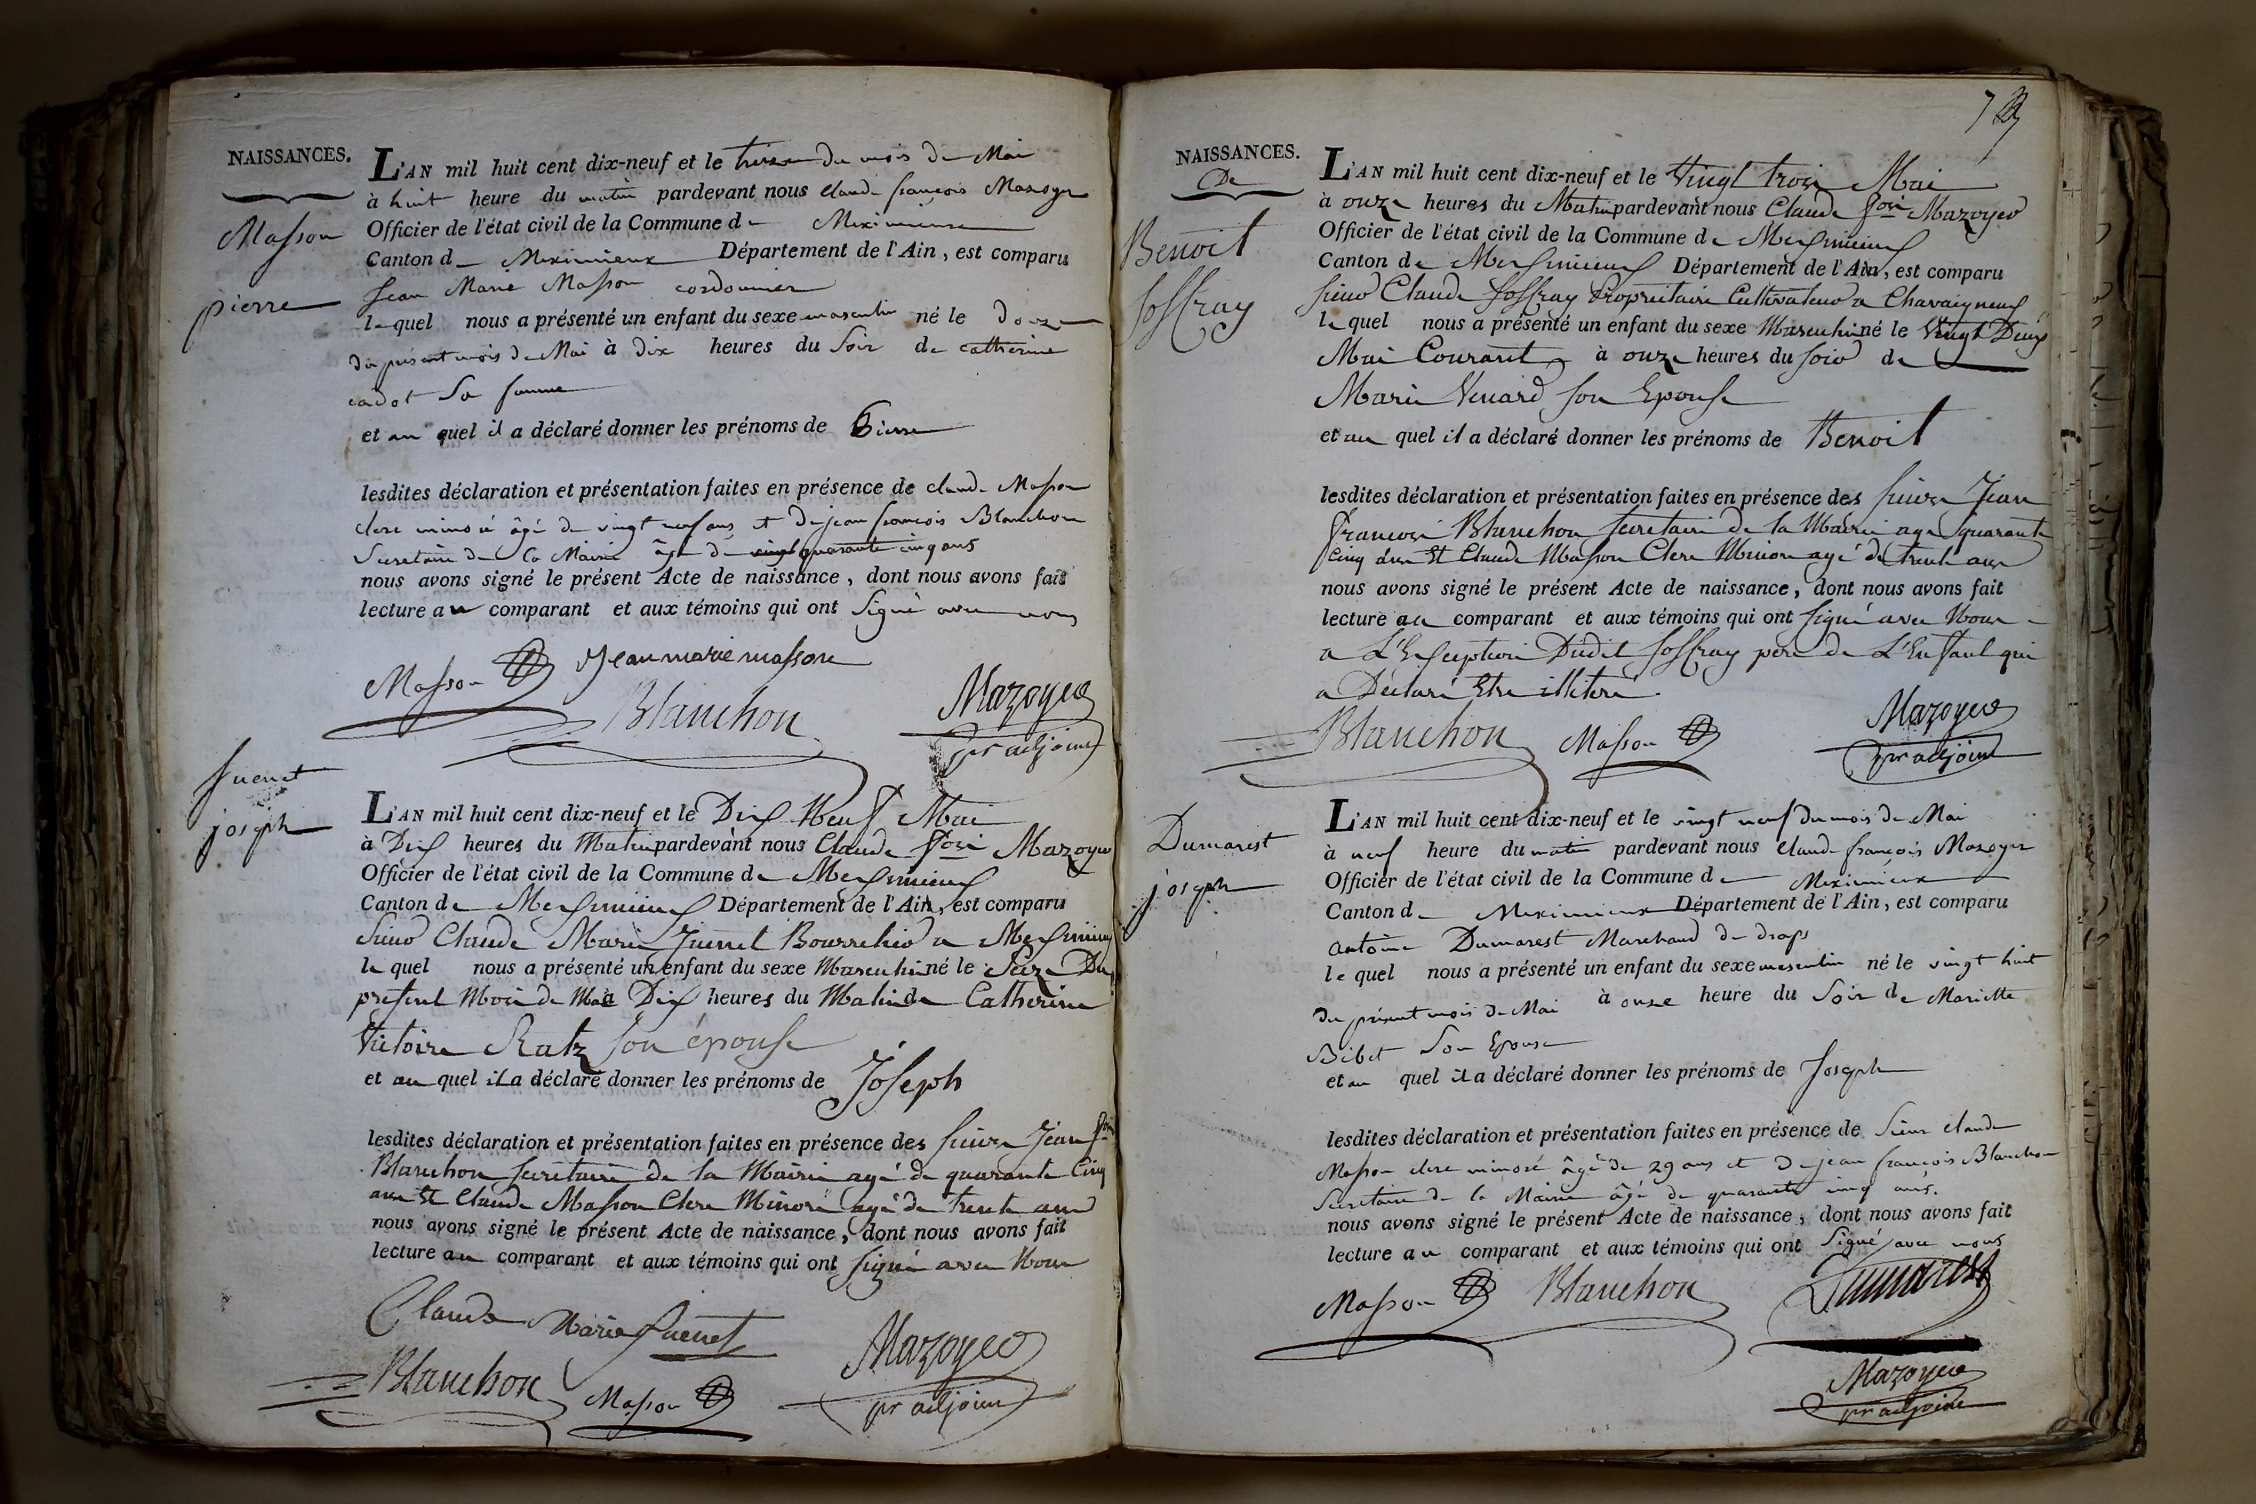 NAISSANCES.
Masson
pierre
L'AN mil huit cent dix-neuf et le treize du mois de Mai
à huit heure du matin pardevant nous claude françois Mazoyer
Officier de l'état civil de la Commune de Meximieux
Canton de Meximieux Département de l'Ain, est comparu
Jean Marie Masson cordonnier
lequel nous a présenté un enfant du sexe masculin né le douze
du présent mois de Mai à dix heures du Soir de catherine
cadot Sa femme
et au quel il a déclaré donner les prénoms de Pierre
lesdites déclaration et présentation faites en présence de claude Masson
clerc minoré âgé de vingt neuf ans et de jean françois Blanchon
Secretaire de la Mairie âgé de quarante cinq ans
nous avons signé le présent Acte de naissance, dont nous avons fait
lecture au comparant et aux témoins qui ont Signé avec nous
Masson Jean marie masson
Blanchon Mazoyer
pr adjoint
Juenet
joseph
L'AN mil huit cent dix-neuf et le Dix Neuf Mai
à Dix heures du Matin pardevant nous Claude fois Mazoyer
Officier de l'état civil de la Commune de Meximieux
Canton de Meximieux Département de l'Ain, est comparu
Sieur Claude Marie Juenet Bourrelier a Meximieux
lequel nous a présenté un enfant du sexe Masculin né le Seize Du
present Mois de Mai a Dix heures du Matin de Catherine
Victoire Ratz son épouse
et au quel il a déclaré donner les prénoms de Joseph
lesdites déclaration et présentation faites en présence des sieurs Jean fois
Blanchon secretaire de la Mairie agé de quarante Cinq
ans Et Claude Masson Clerc Minoré agé de trente ans
nous avons signé le présent Acte de naissance, dont nous avons fait
lecture au comparant et aux témoins qui ont signé avec Nous
Claude Marie Juenet
Blanchon Masson Mazoyer
pr adjoint
NAISSANCES.
De
Benoit
Joffray
L'AN mil huit cent dix-neuf et le Vingt trois Mai
à onze heures du Matin pardevant nous Claude fois Mazoyer
Officier de l'état civil de la Commune de Meximieux
Canton de Meximieux Département de l'Ain, est comparu
sieur Claude Joffray Propriétaire Cultivateur a Chavaigneux
lequel nous a présenté un enfant du sexe Masculin né le Vingt Deux
Mai Courant à onze heures du soir de
Marie Venard son Epouse
et au quel il a déclaré donner les prénoms de Benoit
lesdites déclaration et présentation faites en présence des sieurs Jean
francois Blanchon secretaire de la Mairie agé quarante
Cinq ans Et Claude Masson Clerc Minoré agé de trente ans
nous avons signé le présent Acte de naissance, dont nous avons fait
lecture au comparant et aux témoins qui ont signé avec Nous
a L'Exception Dudit Joffray pere de L'Enfant qui
a Declaré Etre illiteré.
Blanchon Masson Mazoyer
pr adjoint
Dumarest
joseph
L'AN mil huit cent dix-neuf et le vingt neuf du mois de Mai
à neuf heure du matin pardevant nous claude françois Mazoyer
Officier de l'état civil de la Commune de Meximieux
Canton de Meximieux Département de l'Ain, est comparu
antoine Dumarest Marchand de draps
lequel nous a présenté un enfant du sexe masculin né le vingt huit
du présent mois de Mai à onze heure du Soir de Mariette
Bibet Son Epouse
et au quel il a déclaré donner les prénoms de Joseph
lesdites déclaration et présentation faites en présence de Sieur claude
Masson clerc minoré âgé de 29 ans et de jean françois Blanchon
Secretaire de la Mairie âgé de quarante cinq ans.
nous avons signé le présent Acte de naissance, dont nous avons fait
lecture au comparant et aux témoins qui ont Signé avec nous
Masson Blanchon Dumarest
Mazoyer
pr adjoint